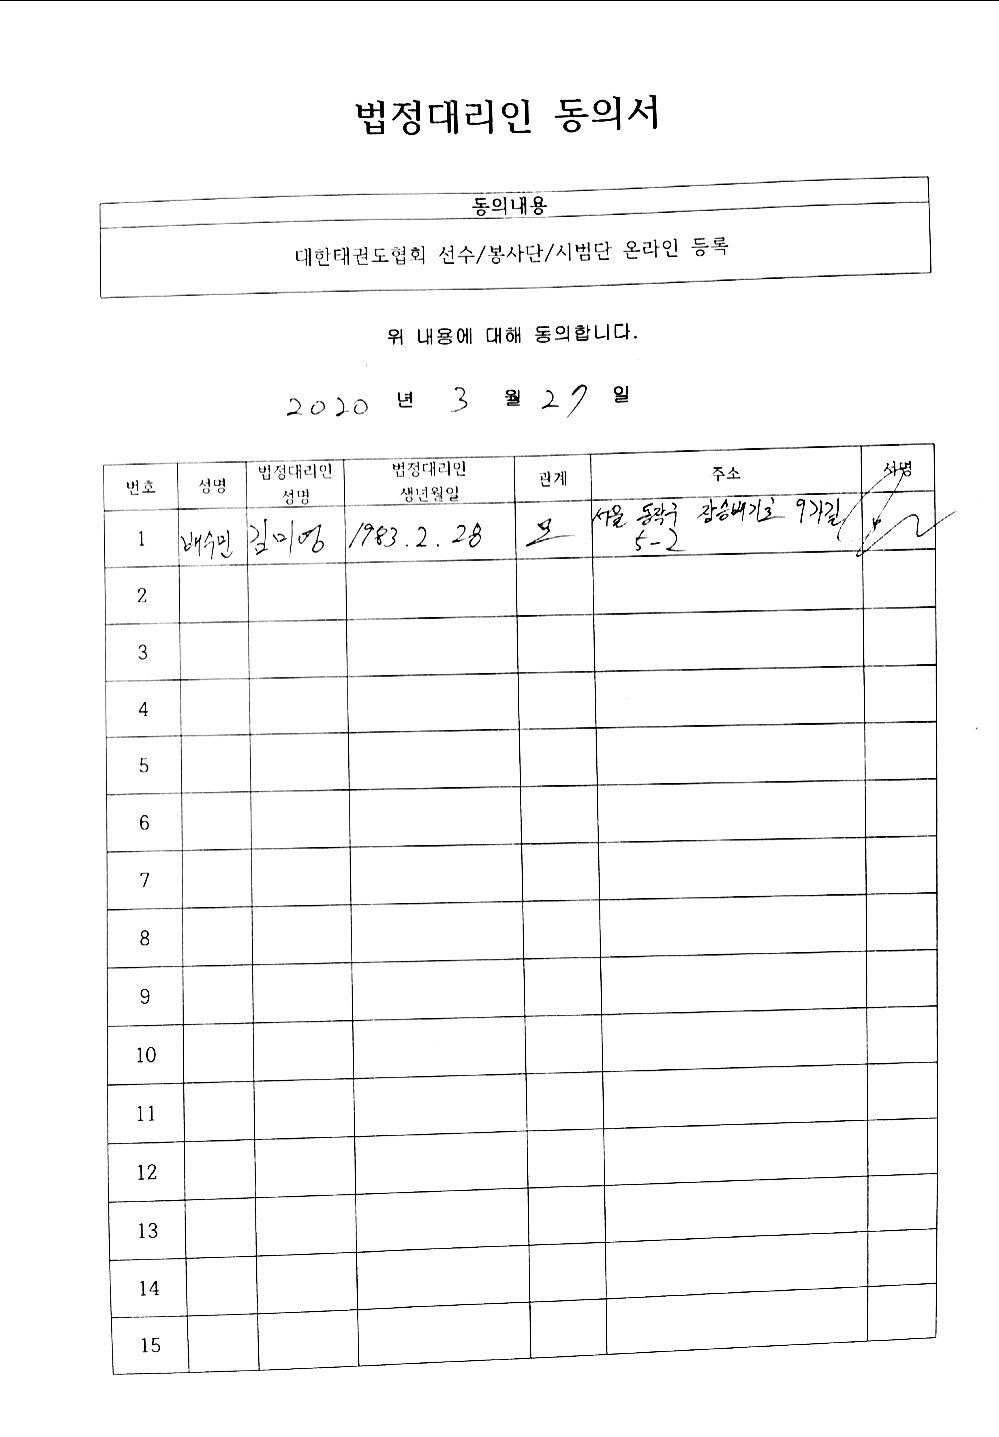 법정대리인 동의서
동의내용
대한태권도협회 선수/봉사단/시범단 온라인 등록
위 내용에 대해 동의합니다.
2020 년 3 월 27 일
번호 성명 법정대리인 성명 법정대리인 생년월일 관계 주소 서명
1 배수민 김미영 1983.2.28 모 서울 동작구 장승배기로 9가길
5-2
2
3
4
5
6
7
8
9
10
11
12
13
14
15